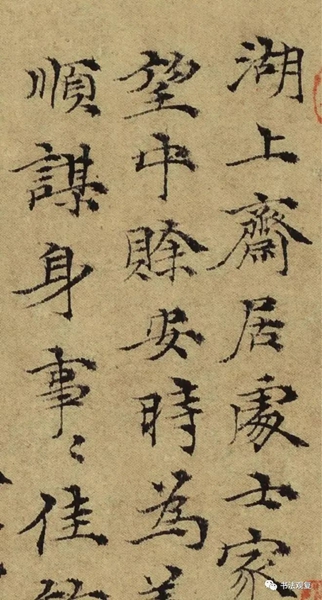 湖上齋居處士家
望中賒安時為
順謀身事〻佳
书法观复